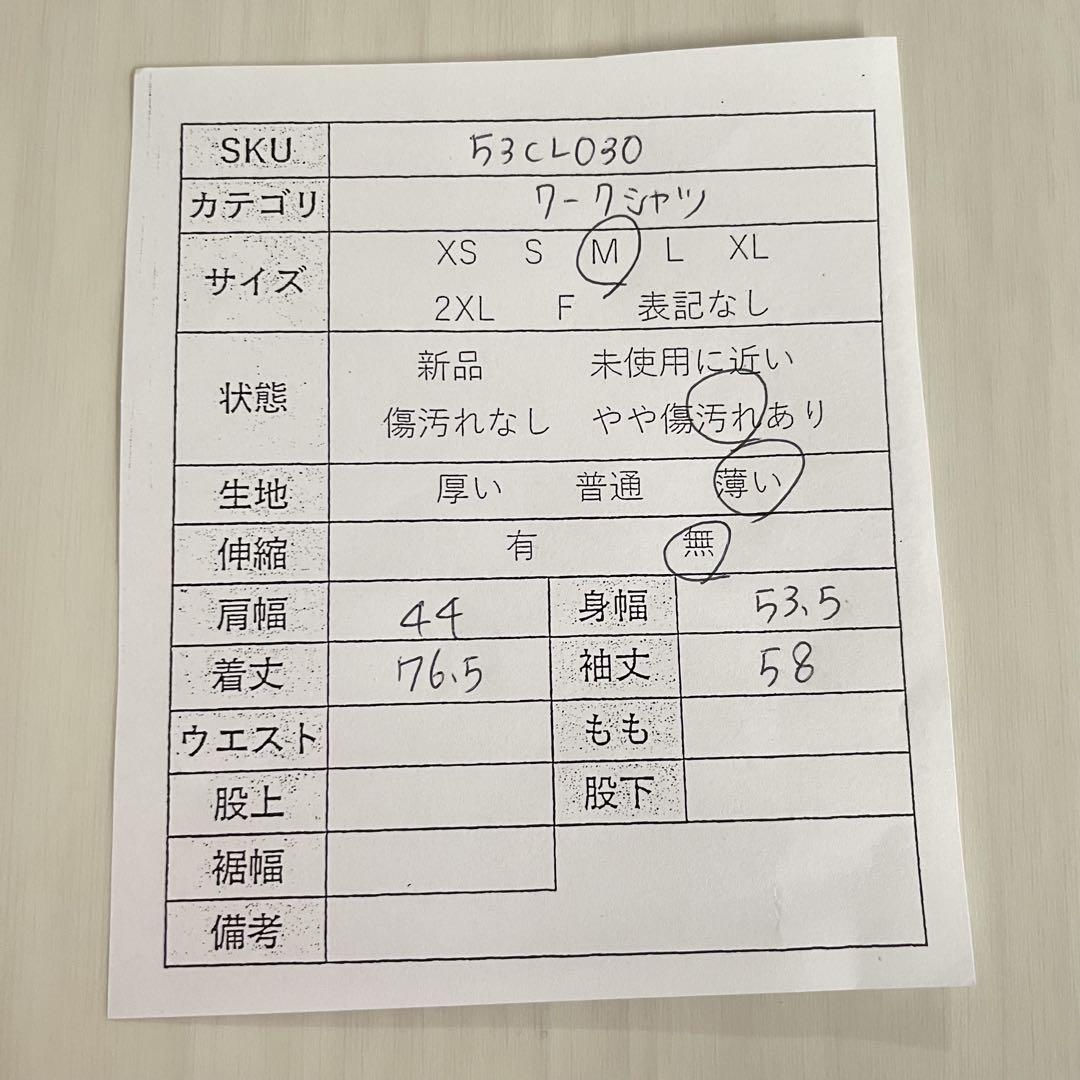 SKU 53CL030
カテゴリ ワークシャツ
サイズ XS S M L XL
2XL F 表記なし
状態 新品 未使用に近い
傷汚れなし やや傷汚れあり
生地 厚い 普通 薄い
伸縮 有 無
肩幅 44 身幅 53.5
着丈 76.5 袖丈 58
ウエスト もも
股上 股下
裾幅
備考